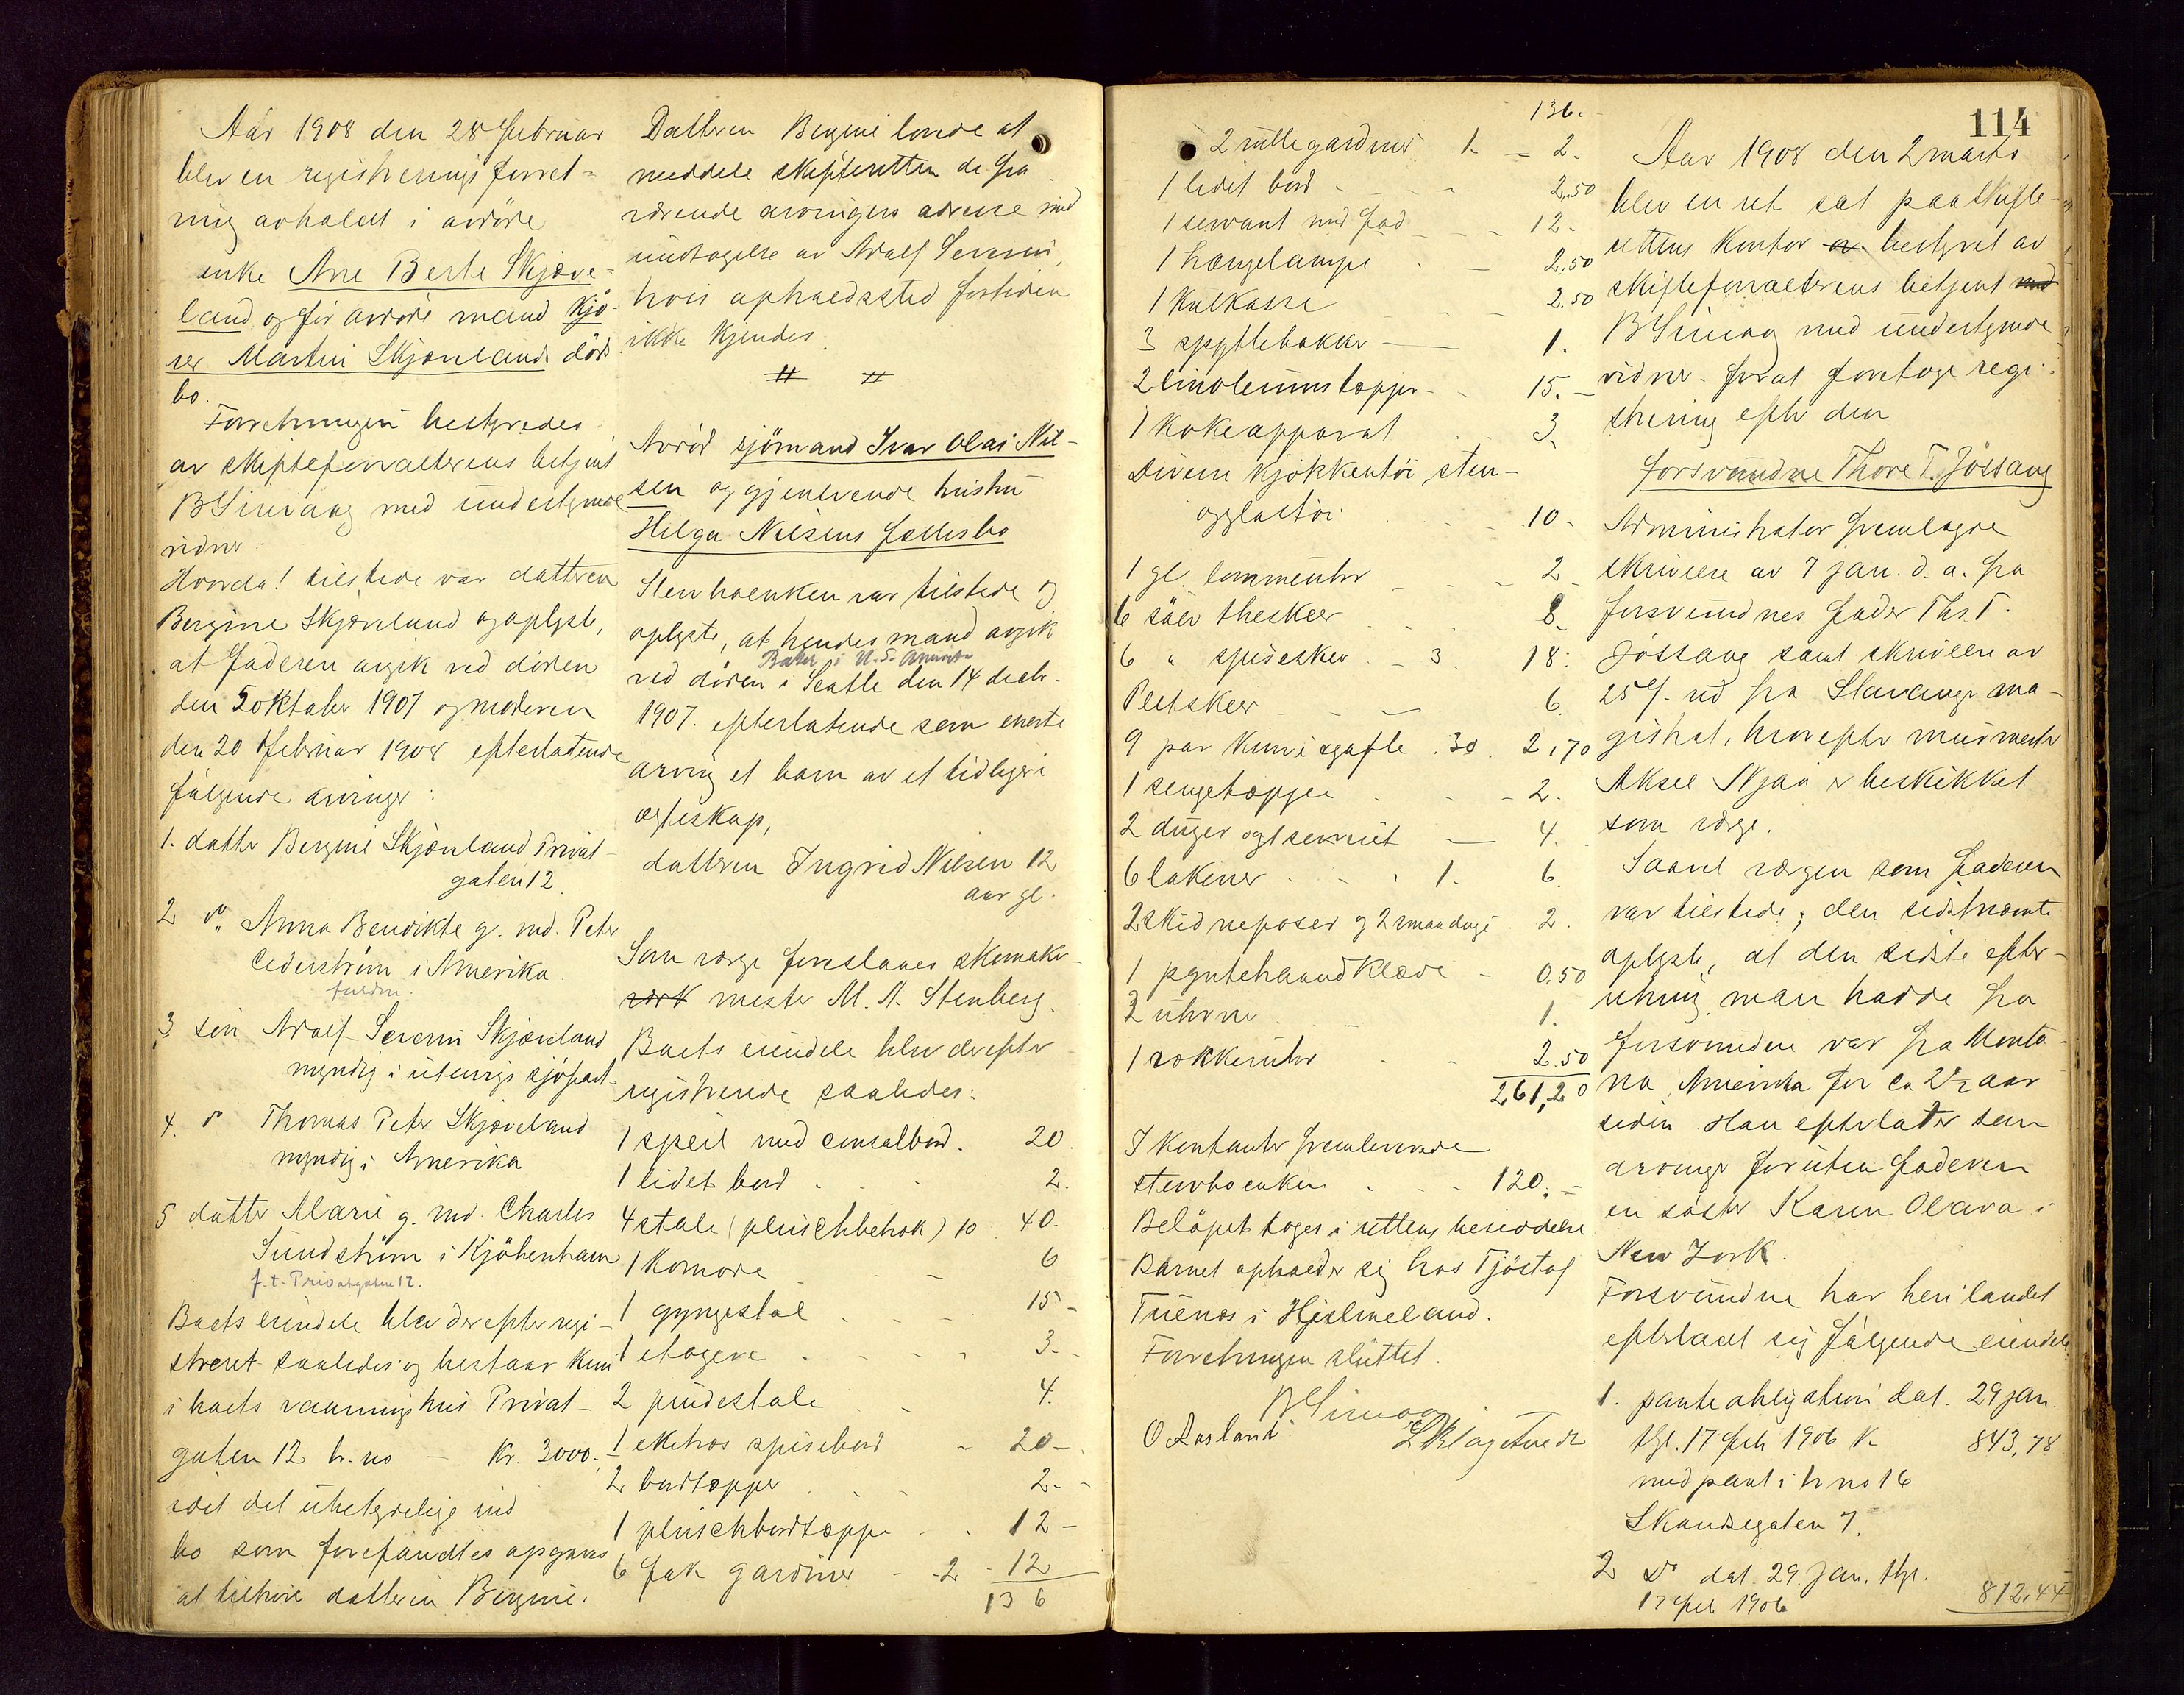 Aar 1908 den 28 februar
blev en registreringsforret-
ning avholdt i avdöde
enke Ane Berte Skjæve-
land og för avdöde mand kjö-
rer Martin Skjævelands döds
bo.
Forretningen bestyredes
av skifteforvalterens betjent
B Sirevaag med undertegnede
vidner.
Hvorda! tilstede var datteren
Bergine Skjæveland og oplyste,
at faderen avgik ved döden
den 5 oktober 1907 og moderen
den 20 februar 1908 efterlatende
fölgende arvinger:
1. datter Bergine Skjæveland Privat-
gaten 12.
2 do. Anna Bendikte g. md. Peter
Cederström i Amerika
3. sön Adolf Severin Skjæveland
myndig i utenrigs sjöfart.
4. do Thomas Peter Skjæveland
myndig i Amerika
5 datter Marie g. md. Charles
Sundström i Kjöbenhavn
f. t. Privatgaten 12.
Boets eiendele blev derefter regi-
streret saaledes og bestaar kun
i boets vaaningshus Privat-
gaten 12 br. no — Kr. 3000.
idet det ubetydelige ind
bo som forefandtes opgaves
at tilhöre datteren Bergine.
Datteren Bergine lovde at
meddele skifteretten de fra
værende arvingers adresse med
undtagelse av Adolf Severin,
hvis opholdssted fortiden
ikke kjendes.
Avdöd sjömand Ivar Olai Nil-
sen og gjenlevende hustru
Helga Nilsens fællesbo
Stervboenken var tilstede og
oplyste, at hendes mand avgik
Baker i U. S. Amerika
ved döden i Seatle den 14 decbr.
1907. efterlatende som eneste
arving et barn av et tidligere
egteskap,
datteren Ingrid Nilsen 12
aar gl.
Som værge foreslaaes skomaker-
mester M. A. Stenberg.
Boets eiendele blev derefter
registrerede saaledes:
1 speil med consolbord. 20.
1 lidet bord . . 2.
4 stole (pluschbetrok) 10 40.
1 Komode 6
1 gyngestol 15 -
1 etagere 3. -
2 pindestole 4.
1 ekebos spisebord 20 -
2 bordtæpper 2. -
1 pluschbordtæppe 12 -
6 fak gardiner - -2 - 12
136
136.
2 rullegardiner 1. - 2.
1 lidet bord 2,50
1 servant med fad 12.
1 hængelampe 2,50
1 Kulkasse 2.50
3 spyttebakker — 1.
2 linoleumstæpper 15. -
1 kokeapparat 3.
Diverse kjökkentöi, sten-
og glastöi 10 -
1 gl. lommeuhr 2 -
6 sölv theskeer 8.
6 " spiseskeer - 3. 18.
Pletskeer 6.
9 par kniv & gafle .30. 2,70
1 sengetæppe - 2.
2 duger og 1 serviet — 4.
6 lakener 1. 6.
2 skidneposer og 2 smaa duge 2.
1 pyntehaandklæde - 0,50
2 uhrne 1.
1 vækkeruhr 2.50
261,20
I Kontanter fremleverede
stervboenken 120. -
Belöpet toges i rettens besiddelse
Barnet opholder sig hos Tjöstof
Tuenæs i Hjelmeland.
Forretningen sluttet.
B Sirevaag
O Rosland
114
Aar 1908 den 2 marts
blev en ret sat paa Skifte-
rettens Kontor bestyret av
skifteforvalterens betjent
B Sirevaag med undertegnede
vidner - for at foretage regi-
strering efter den
forsvundne Thore T. Jössang
Administrator fremlagde
skrivelse av 7 jan. d. a. fra
forsvundnes fader Ths. T.
Jössang samt skrivelse av
25 f. md fra Stavanger ma-
gistrat, hvorefter murmester
Aksel Njaa er beskikket
som værge.
Saavel værgen som faderen
var tilstede; den sidstnævnte
oplyste, at den sidste efter-
retning man hadde fra
forsvundne var fra Monta-
na, Amerika for ca 2½ aar
siden. Han efterlater som
arvinger foruten faderen
en söster Karen Olava i
New York.
Forsvundne har her i landet
efterlatt sig fölgende eiendele.
1. panteobligation dat. 29 jan.
tgl. 17 feb 1906 k. 843,78
med pant i br no 16
Skandsegaten 7.
2 Do dat. 29. jan. tgl.
17 feb 1906 812,44